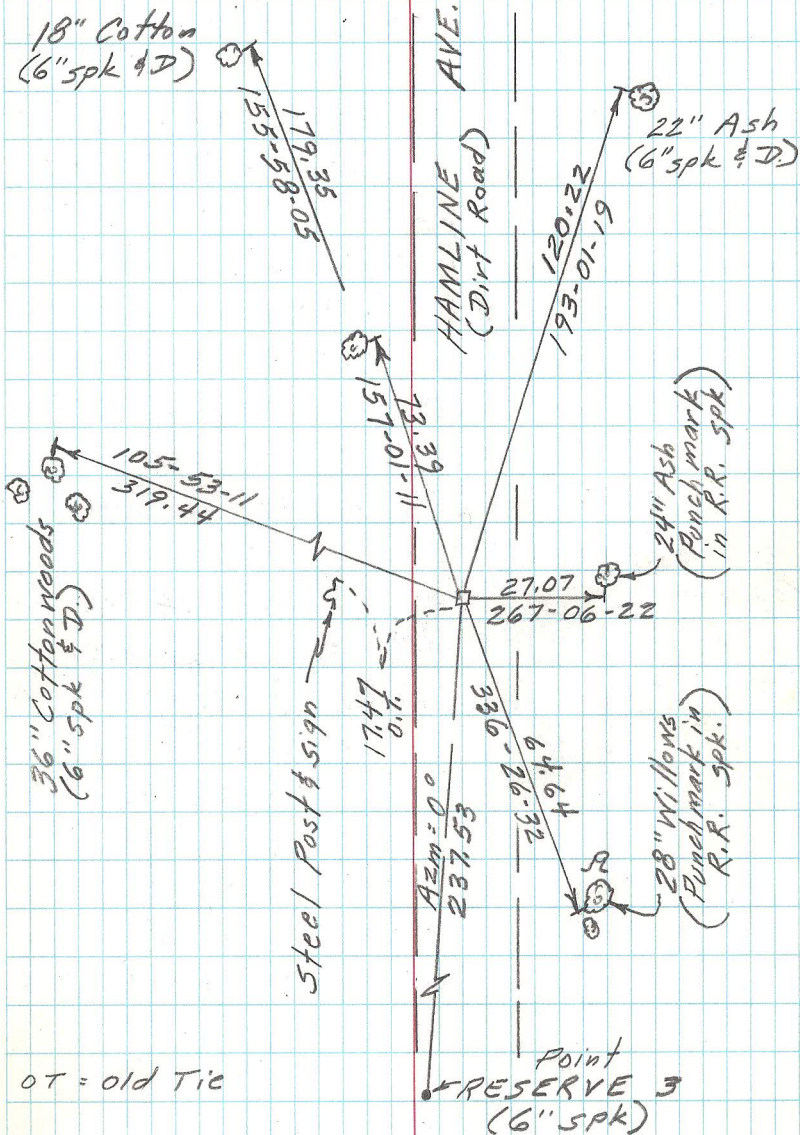 18" Cotton
(6" spk & D)
179.35
155-58-05
HAMLINE AVE.
(Dirt Road)
22" Ash
(6" spk & D.)
120.22
193-01-19
73.39
157-01-11
105-53-11
319.44
36" Cottonwoods
(6" spk & D.)
24" Ash
(Punch mark
in R.R. spk)
27.07
267-06-22
Steel Post & sign
17.47
O.T.
336-26-32
64.64
28" Willows
(Punch mark in
R.R. spk.)
Azm = 0°
237.53
OT = Old Tie
Point
RESERVE 3
(6" spk)